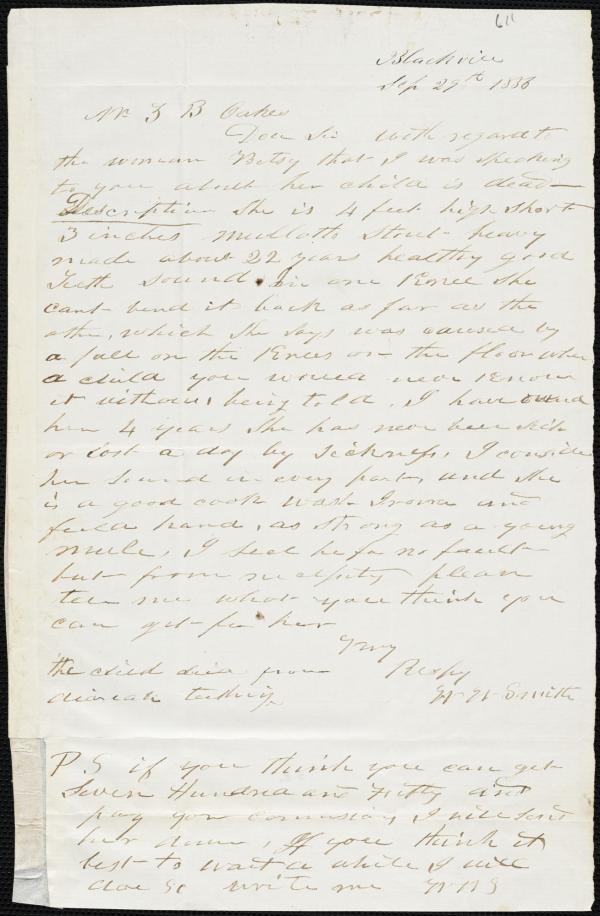 611
Blackville
Sep 29th 1856
Mr Z B Oakes
Dear Sir with regard to
the woman Betsy that I was speaking
to you about her child is dead
Description She is 4 feet high short
3 inches mullotto Stout heavy
made about 22 years healthy good
Teeth sound in one Knee She
cant bend it back as far as the
other, which She Says was caused by
a fall on the Knees on the floor when
a child you would never Know
it without being told. I have owned
her 4 years She has never been sick
or lost a day by Sickness, I consider
her sound in every part, and she
is a good cook wash Irona and
feild hand, as strong as a young
mule, I Sell he for no fault
but from necessity please
tell me what you think you
can get for her
Yours
the child died from Respy
diareah teething W W Smith
P. S if you think you can get
Seven Hundred and Fifty and
pay your comission, I will send
her down, If you think it
best to wait a while I will
doe So write me